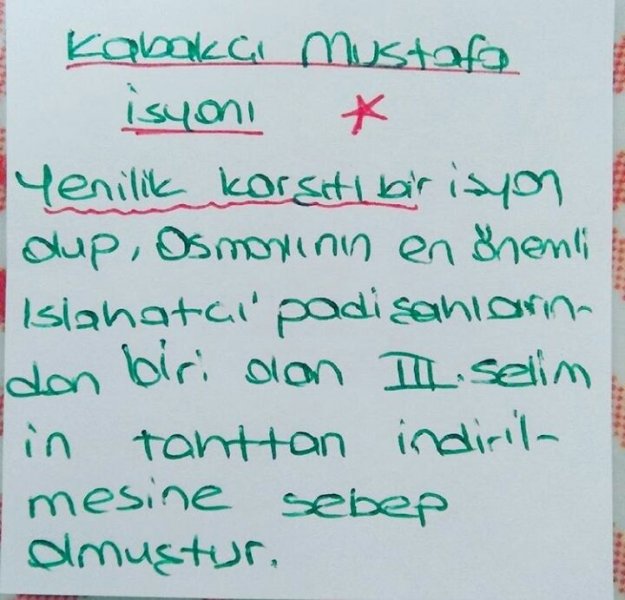 Kabakcı Mustafa
isyanı
Yenilik karşıtı bir isyan
olup, Osmanlının en önemli
Islahatcı padişahların-
dan biri olan III. Selim
in tahttan indiril-
mesine sebep
olmuştur.